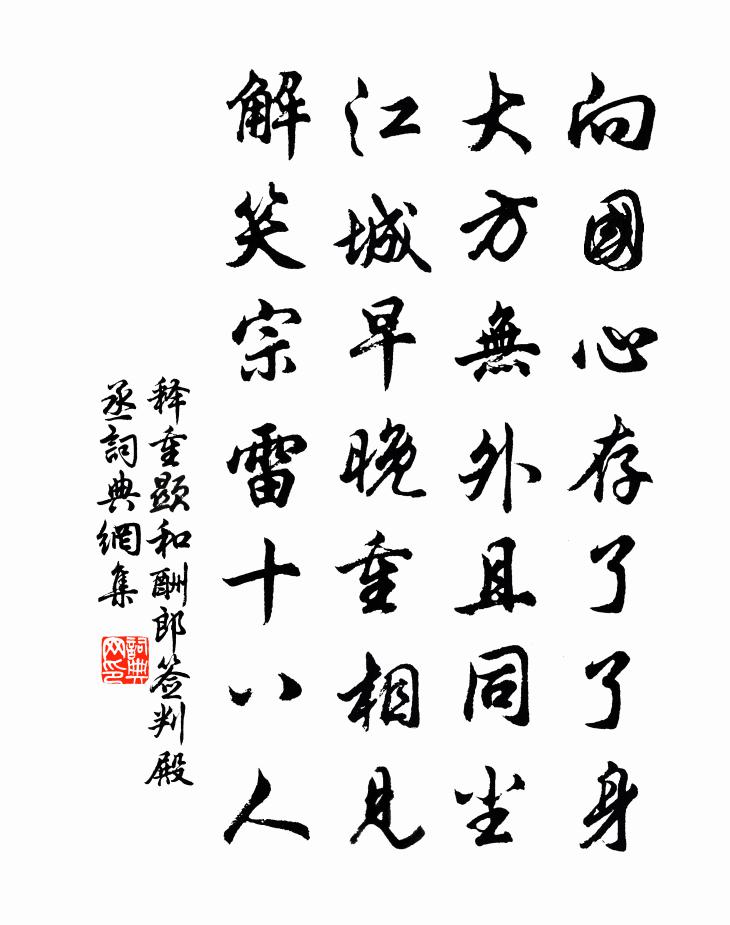 向國心存了了身
大方無外且同尘
江城早晚重相見
解笑宗雷十八人
释重顕和酬郎签判殿
丞詞典網集
詞典
网印